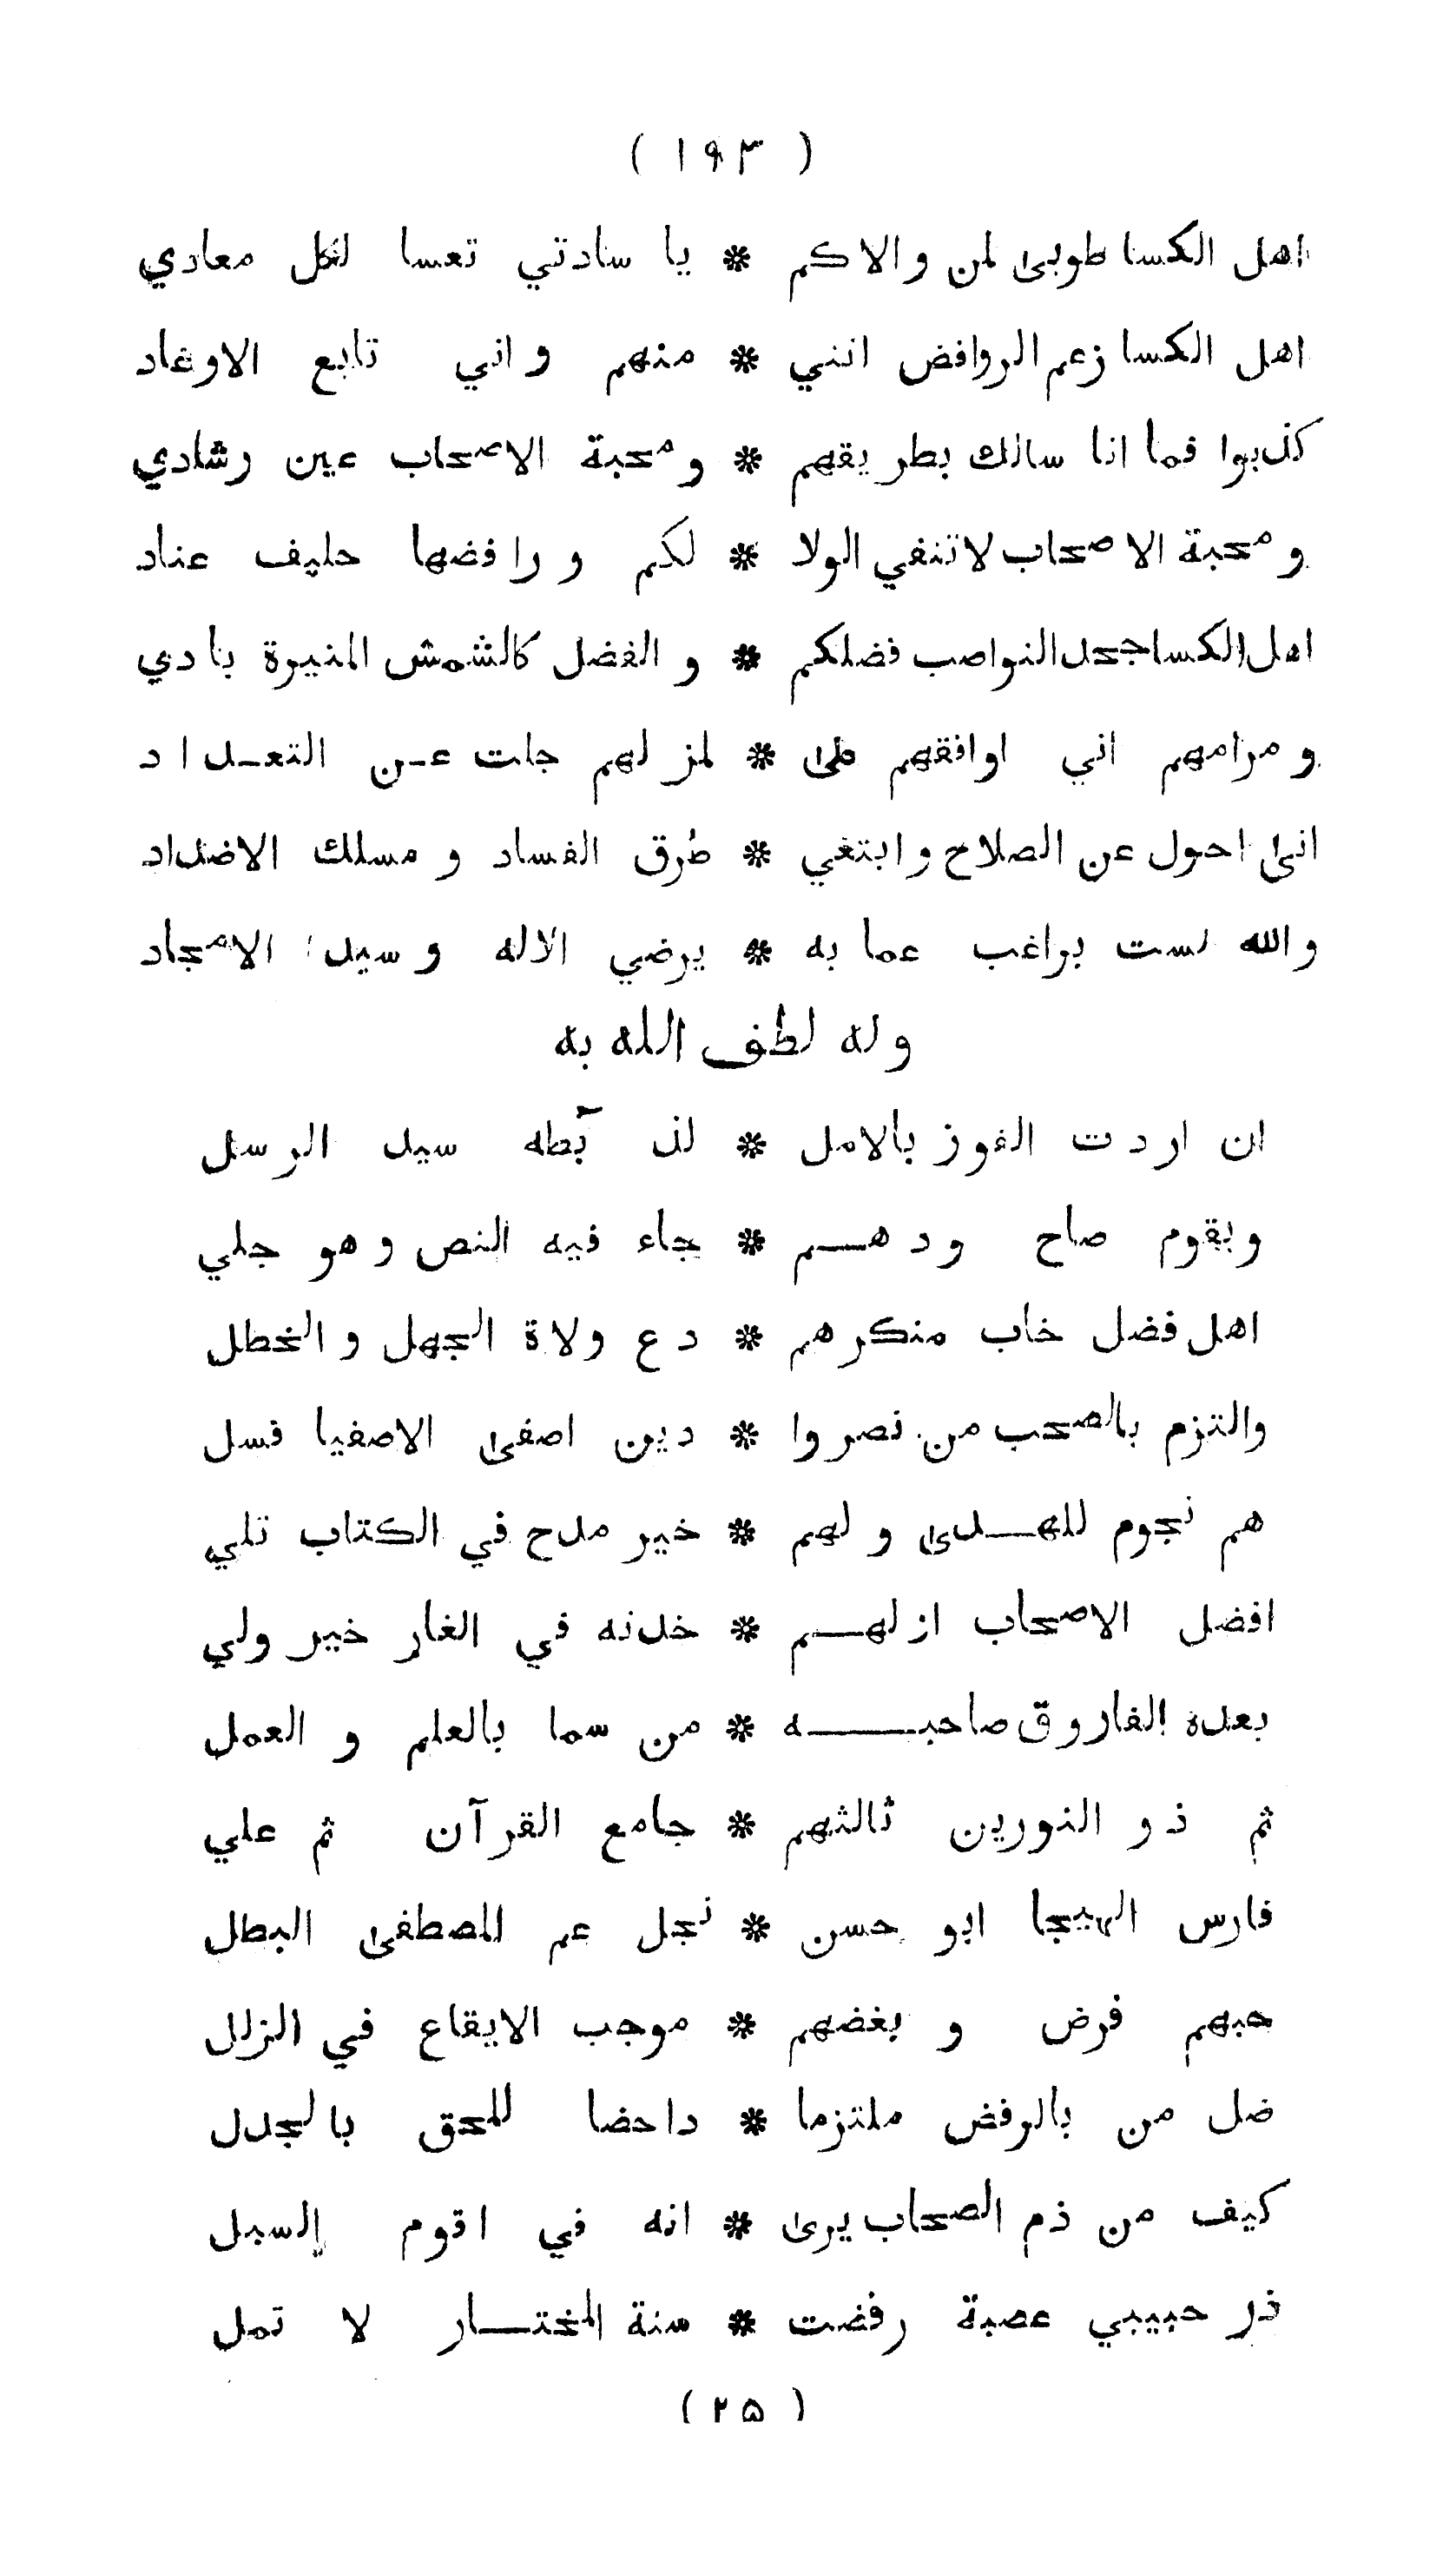 ( ١٩٣ )
اهل الكسا طوبى لمن والاكم * يا سادتي تعسا لكل معادي
اهل الكسا زعم الروافض انني * منهم واني تابع الاوغاد
كذبوا فما انا سالك بطريقهم * ومحبة الاصحاب عين رشادي
ومحبة الاصحاب لاتنفي الولا * لكم ورافضها حليف عناد
اهل الكسا جحد النواصب فضلكم * والفضل كالشمش المنيرة بادي
ومرامهم اني اوافقهم على * لمزلهم جلت عن التعداد
انى احول عن الصلاح وابتغي * طرق الفساد ومسلك الاضداد
والله لست براغب عما به * يرضي الاله وسيد الامجاد
وله لطف الله به
ان اردت الفوز بالامل * لذ بطه سيد الرسل
وبقوم صاح ودهم * جاء فيه النص وهو جلي
اهل فضل خاب منكرهم * دع ولاة الجهل والخطل
والتزم بالصحب من نصروا * دين اصفى الاصفيا فسل
هم نجوم للهدى ولهم * خير مدح في الكتاب تلي
افضل الاصحاب ازلهم * خدنه في الغار خير ولي
بعده الفاروق صاحبه * من سما بالعلم والعمل
ثم ذو النورين ثالثهم * جامع القرآن ثم علي
فارس الهيجا ابو حسن * نجل عم المصطفى البطل
حبهم فرض وبغضهم * موجب الايقاع في الزلل
ضل من بالرفض ملتزما * داحضا للحق بالجدل
كيف من ذم الصحاب يرى * انه في اقوم السبل
ذر حبيبي عصبة رفضت * سنة المختار لا تمل
( ٢٥ )